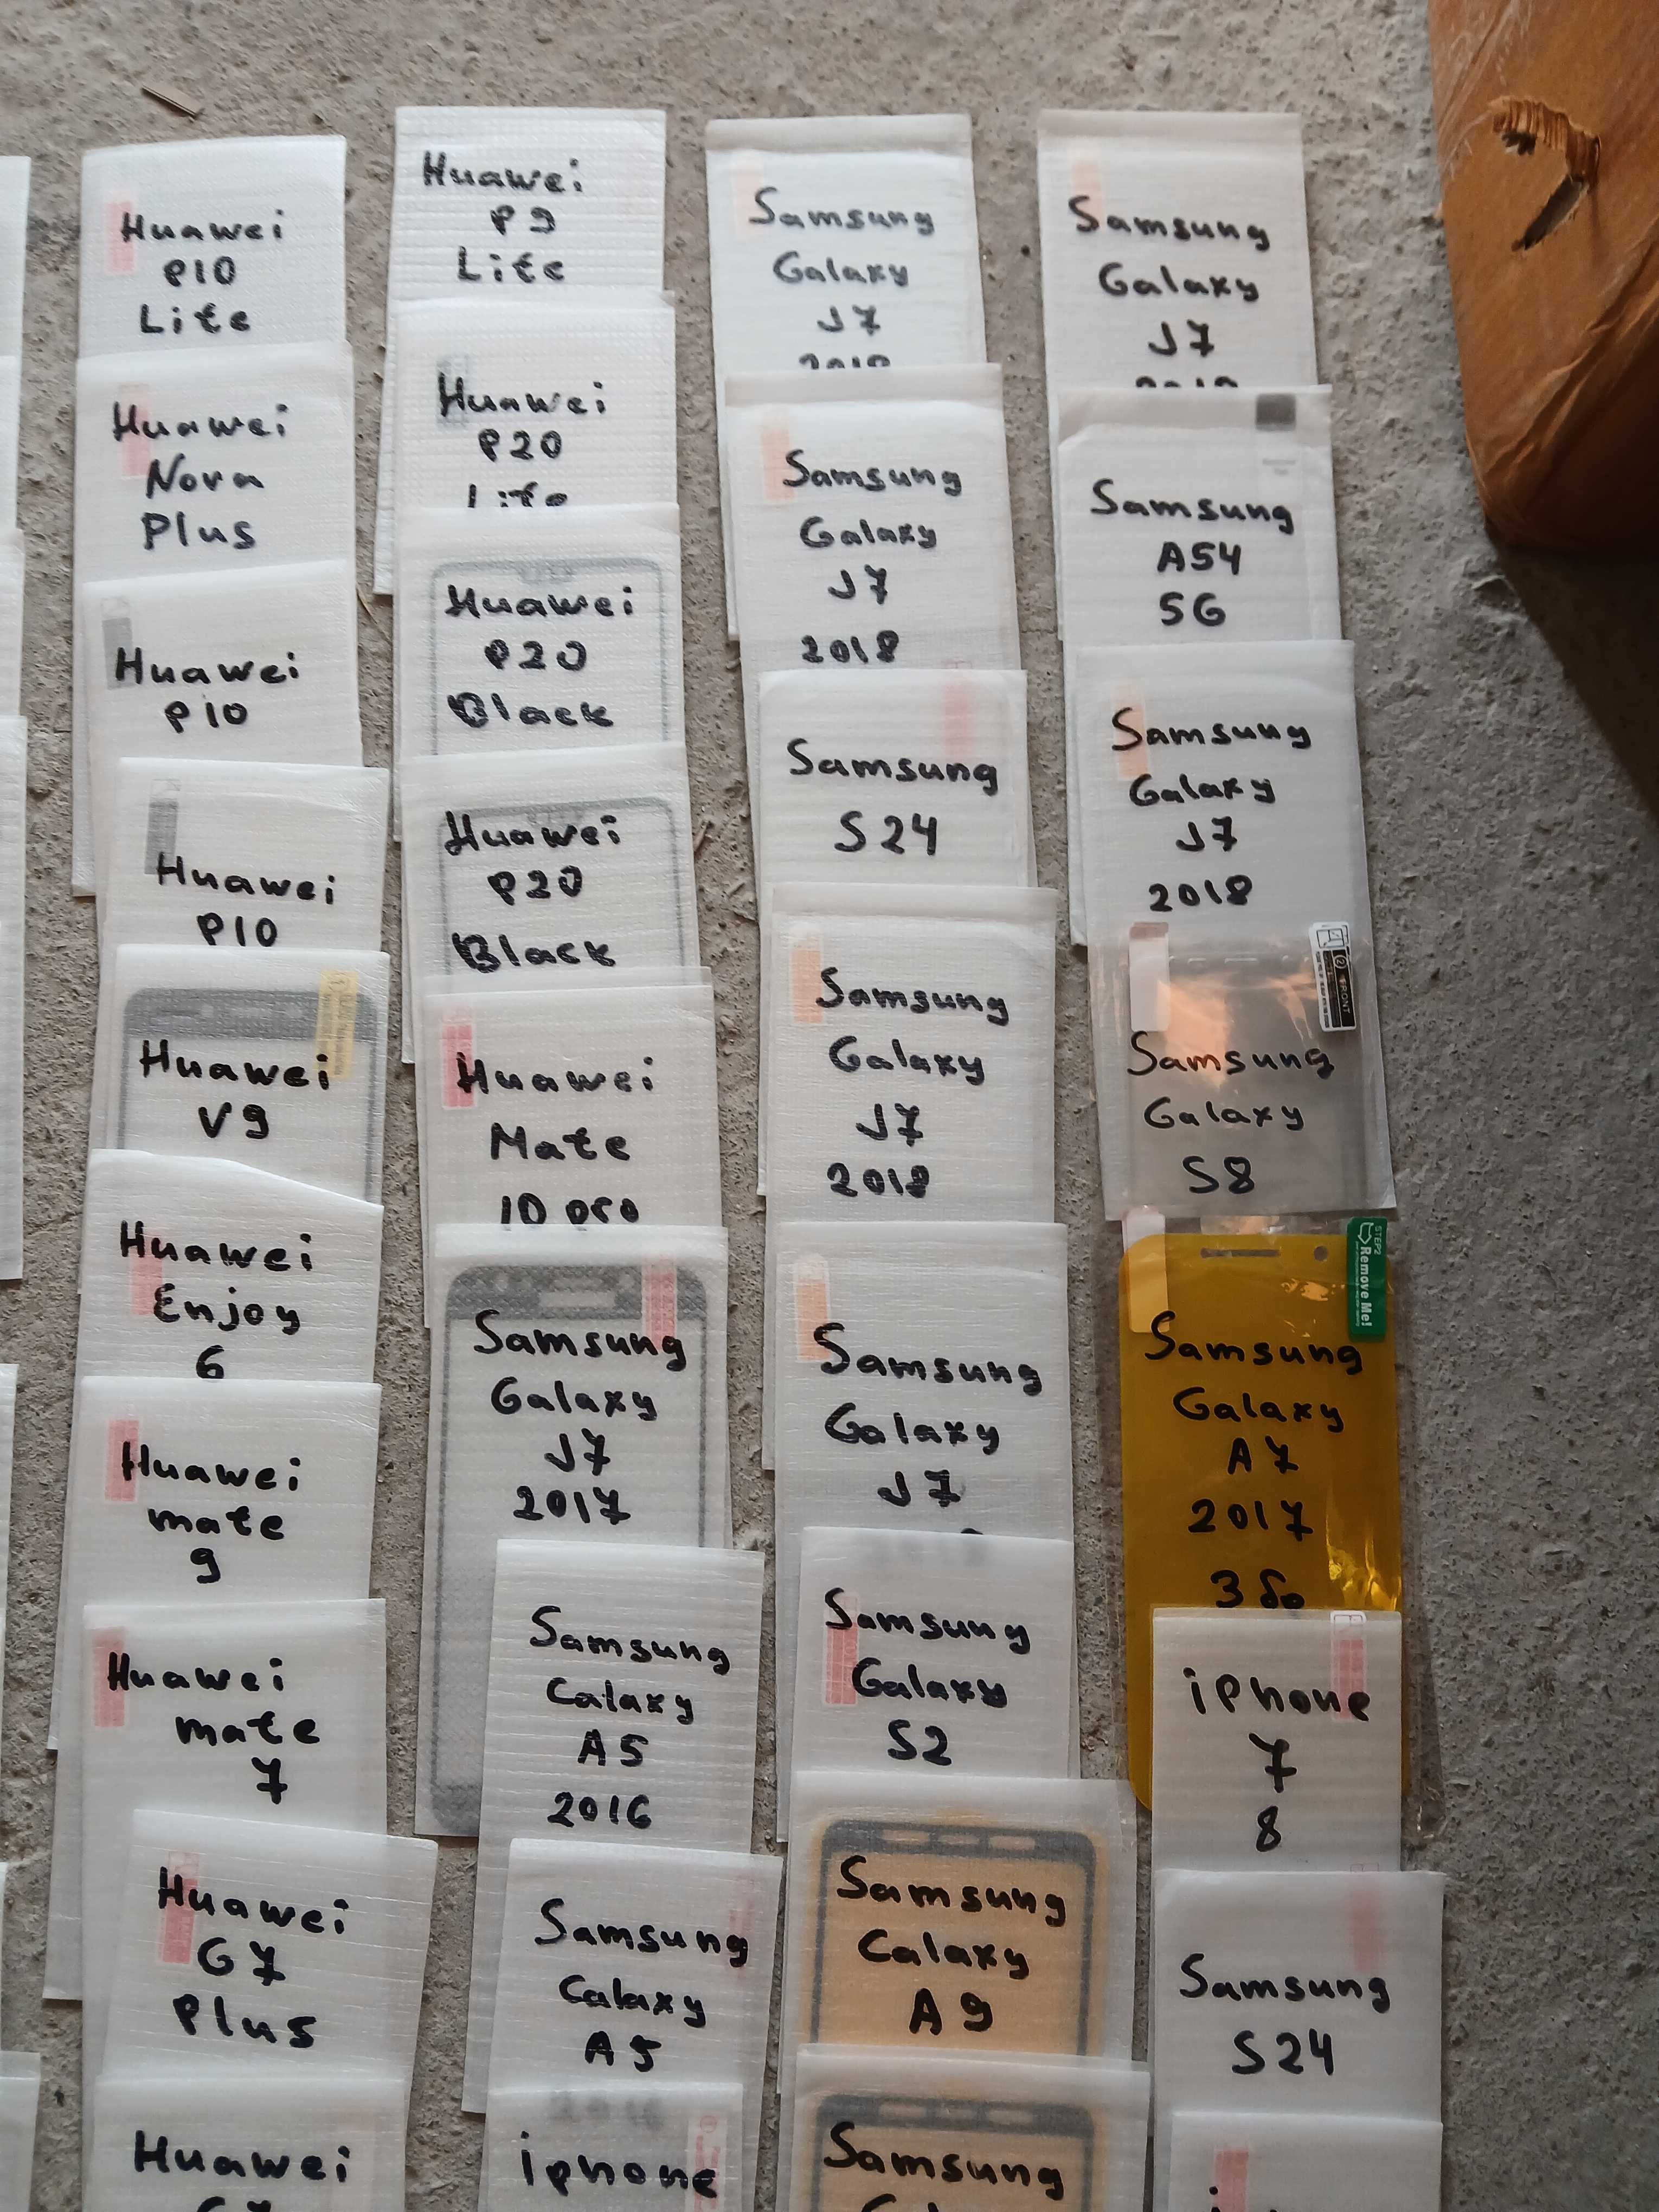 Huawei
P10
Lite
Huawei
Nova
Plus
Huawei
P10
Huawei
P10
Huawei
V9
Huawei
Enjoy
6
Huawei
mate
9
Huawei
mate
7
Huawei
G7
Plus
Huawei
G7
Huawei
P9
Lite
Huawei
P20
Lite
Huawei
P20
Black
Huawei
P20
Black
Huawei
Mate
10 pro
Samsung
Galaxy
J7
2017
Samsung
Calaxy
A5
2016
Samsung
Calaxy
A5
2016
iphone
Samsung
Galaxy
J7
2018
Samsung
Galaxy
J7
2018
Samsung
S24
Samsung
Galaxy
J7
2018
Samsung
Galaxy
J7
Samsung
Galaxy
S2
Samsung
Calaxy
A9
Samsung
Samsung
Galaxy
J7
2018
Samsung
A54
5G
Samsung
Galaxy
J7
2018
(2) FRONT
Samsung
Galaxy
S8
STEP2
Remove Me!
Samsung
Galaxy
A7
2017
iphone
7
8
Samsung
S24